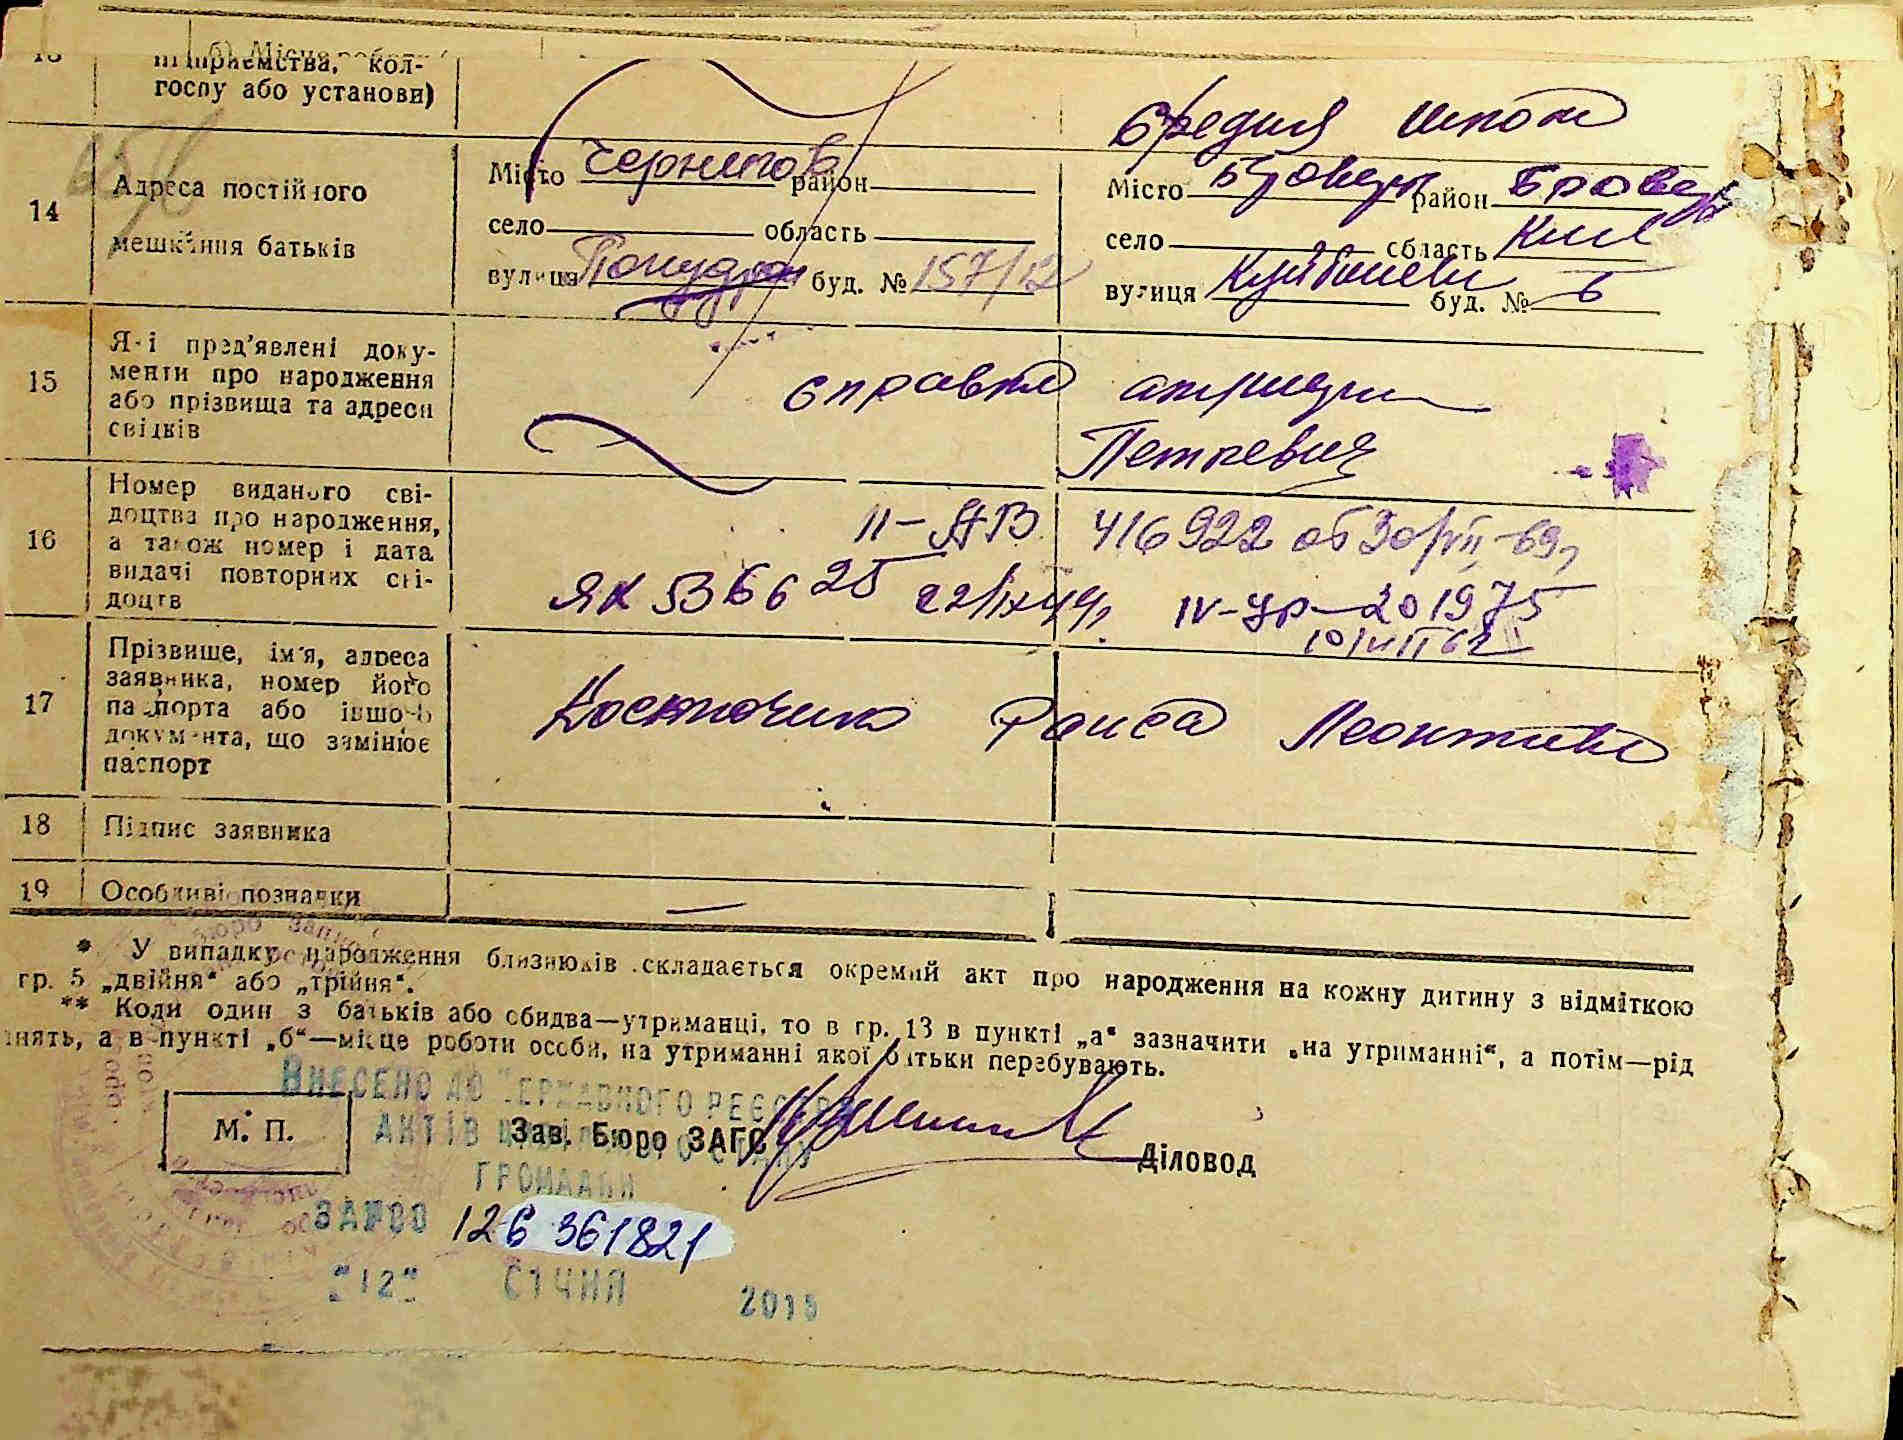 підприємства, кол-
госпу або установи)
Средня школа
14 Адреса постійного мешкання батьків
Місто Чернигов район
село область
вулиця буд. № 157/12
Місто Бровары район Бровар
село область Киев
вулиця Куйбишева буд. № 6
15 Які пред'явлені доку-
менти про народження
або прізвища та адреси
свідків
справка
Петкевич
16 Номер виданого сві-
доцтва про народження,
а також номер і дата
видачі повторних сві-
доцтв
II-АВ 416922 от 30/VII-69г
ЯК 536625 22/IX 44г. IV-УР-201975
17 Прізвише, ім'я, адреса
заявника, номер його
паспорта або іншого
документа, що замінює
паспорт
Костюченко Раиса Леонтиевна
18 Підпис заявника
19 Особливі познавки
* У випадку народження близнюків складається окремий акт про народження на кожну дитину з відміткою
гр. 5 „двійня“ або „трійня“.
** Коли один з батьків або обидва—утриманці, то в гр. 13 в пункті „а“ зазначити „на утриманні“, а потім—рід
нять, а в пункті „б“—місце роботи особи, на утриманні якої батьки перебувають.
ВНЕСЕНО ДО ДЕРЖАВНОГО РЕЄСТРУ
АКТІВ ЦИВІЛЬНОГО СТАНУ
ГРОМАДЯН
М. П.
Зав. Бюро ЗАГС
Діловод
126 361821
"12" СІЧНЯ 2015